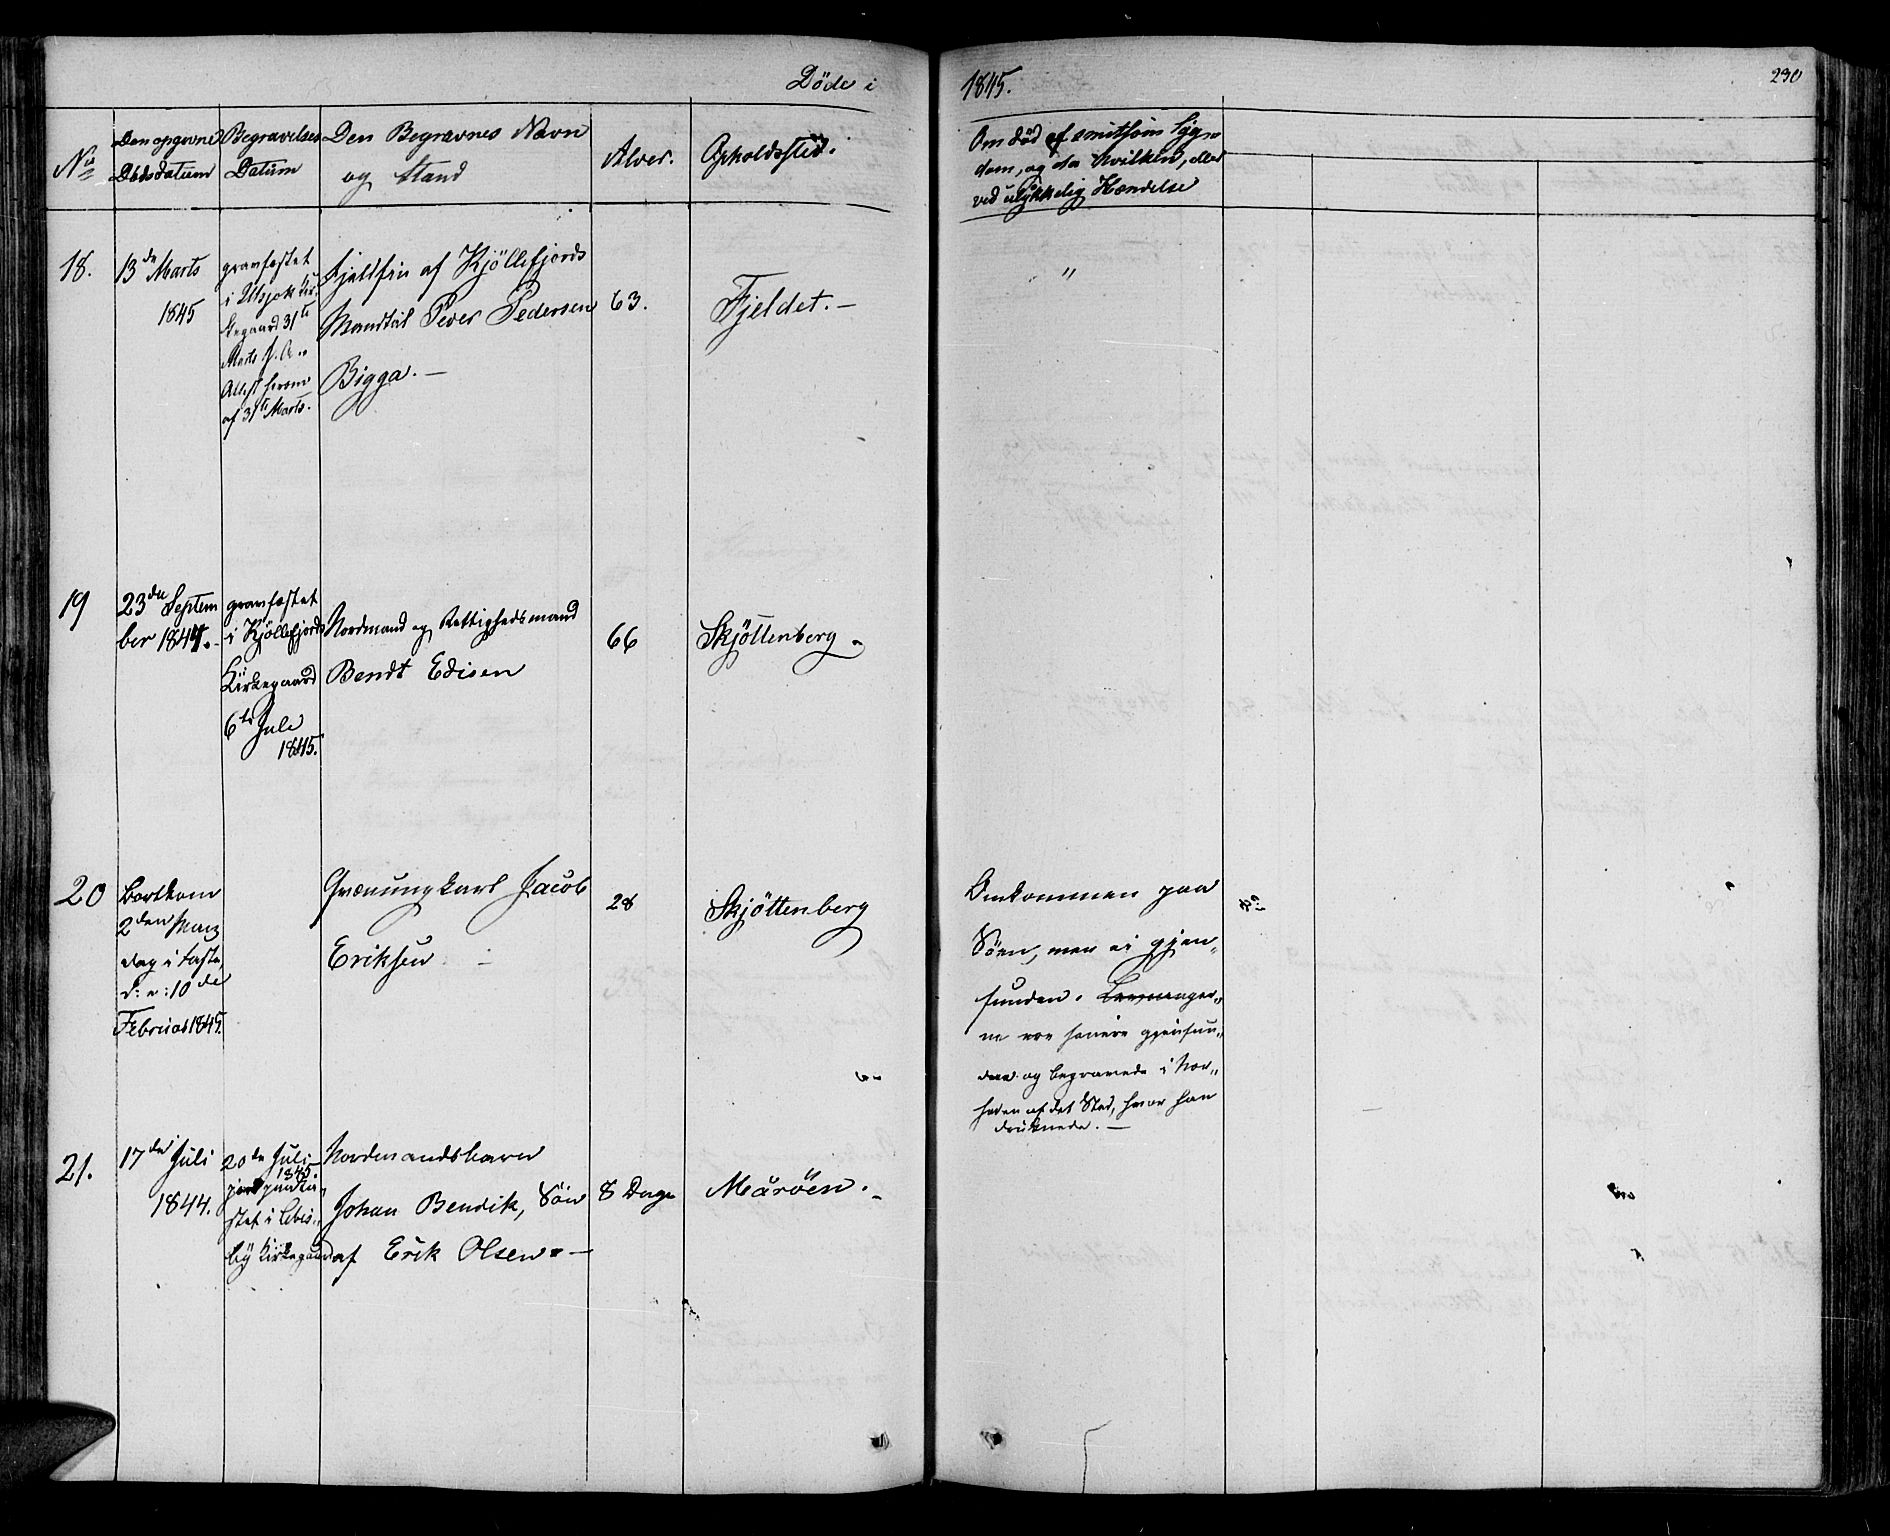 Døde i 1845.
230
No
Den opgivne Dødsdatum
Begravelses Datum
Den Begravnes Navn og Stand
Alder.
Opholdssted.
Om død af smitsom Syg-
dom, og da hvilken, eller
ved ulykkelig Hændelse
18.
13de Marts
1845
gravfæstet
i Utsjok Kir-
kegaard 31te
Marts s. A.
Attest herom
af 31te Marts.
Fjeldfin af Kjøllefjords
Mandtal Peder Pedersen
Bigga. —
63.
Fjeldet. —
"
19
23de Septem
ber 1844.
gravfæstet
i Kjøllefjords
Kirkegaard
6te Juli
1845.
Nordmand og Rettighedsmand
Bendt Edisen
66
Skjøttenberg.
20
Bortkom
2den Man
dag i Faste,
d: e: 10de
Februar 1845.
Qvænungkarl Jacob
Eriksen —
28
Skjøttenberg
Omkommen paa
Søen, men ei gjen-
funden.
ne ere senere gjenfun-
dne og begravede i Nær-
heden af det Sted, hvor han
druknede. —
21.
17de Juli
1844.
20de Juli
1845.
jordfæ
stet i Lebes-
by Kirkegaard
Nordmandsbarn
Johan Bendik, Søn
af Erik Olsen. —
8 Dage
Marøen. —